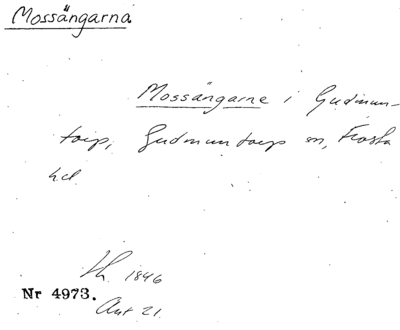 Mossängarna
Mossängarne i Gudmun-
torp, Gudmuntorps sn, Frosta
hd
Lh. 1846
Nr 4973.
Ant 21.